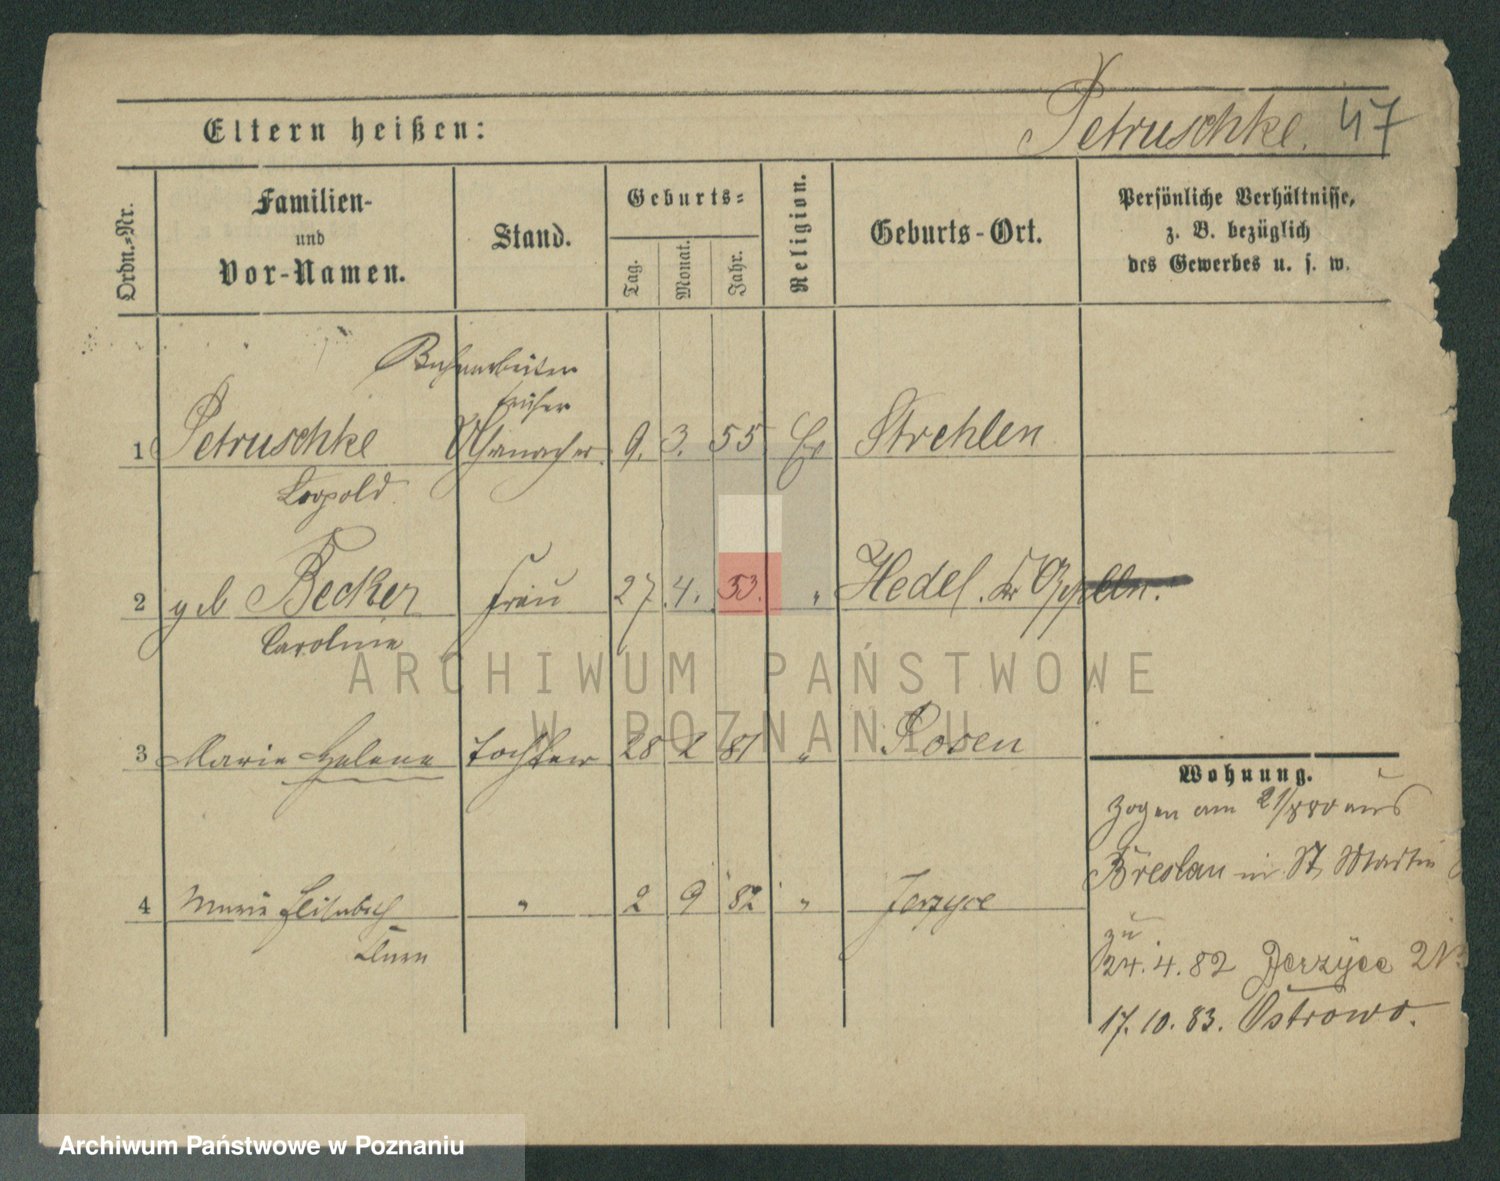 Petruschke. 47
Eltern heißen:
Ordn.-Nr.
Familien-
und
Vor-Namen.
Stand.
Geburts-
Tag.
Monat.
Jahr.
Religion.
Geburts-Ort.
Persönliche Verhältnisse,
z. B. bezüglich
des Gewerbes u. s. w.
Bahnarbeiter
früher
1 Petruschke Uhrmacher. 9. 3. 55 Ev Strehlen
Leopold
2 geb Becker Frau 27 4. 53. " Hedel. Kr
Caroline
3 Marie Helene Tochter 28 2 81 " Posen
4 Marie Elisabeth " 2 9 82 " Jerzyce
Wohnung.
zogen am 21/ aus
Breslau in St Martin
zu
24.4.82 Jerzyce 2
17.10.83. Ostrowo.
ARCHIWUM PAŃSTWOWE
W POZNANIU
Archiwum Państwowe w Poznaniu